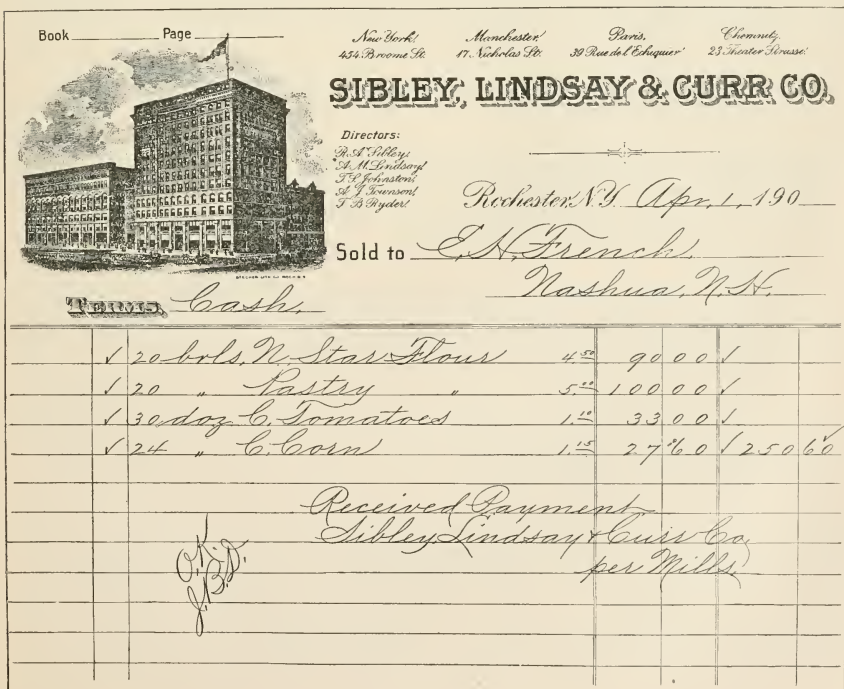 Book Page
New York. Manchester. Paris. Chemnitz.
454 Broome St. 17 Nicholas St. 39 Rue de l'Echiquier 23 Theater Strasse.
SIBLEY, LINDSAY & CURR CO.
Directors:
R. A. Sibley,
A. M. Lindsay,
T. S. Johnston,
A. J. Townson,
T. B. Ryder.
Rochester, N.Y. Apr. 1, 190
Sold to E. H. French.
Nashua, N. H.
TERMS, Cash.
✓ 20 brls. N. Star Flour 4.50 90 00 ✓
✓ 20 " Pastry " 5.00 100 00 ✓
✓ 30 doz C. Tomatoes 1.10 33 00 ✓
✓ 24 " C. Corn 1.15 27 60 ✓ 250 60
Received Payment
Sibley, Lindsay & Curr Co,
per Mills.
O.K.
J.B.D.